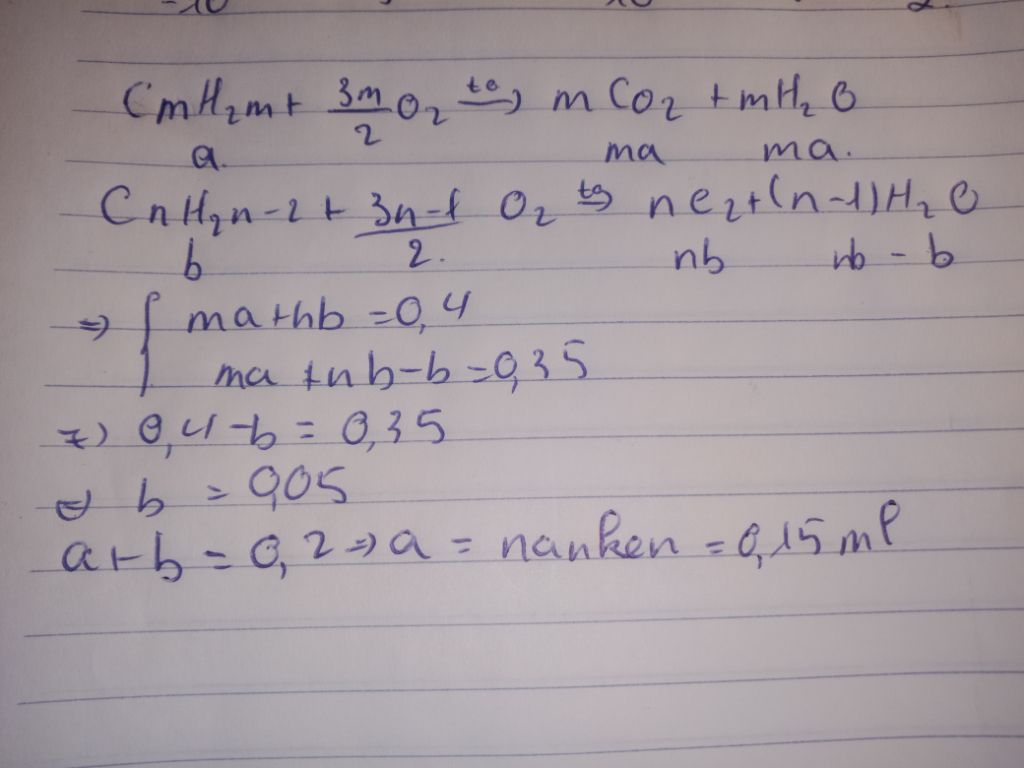 CmH₂m + 3m/2 O₂ t° → m CO₂ + mH₂O
a. ma ma.
CnH₂n-2 + 3n-1/2. O₂ t° → n CO₂ + (n-1)H₂O
b nb nb - b
⇒ { ma + nb = 0,4
ma + nb - b = 0,35
⇒ 0,4 - b = 0,35
⇒ b = 0,05
a + b = 0,2 ⇒ a = nanken = 0,15 mol